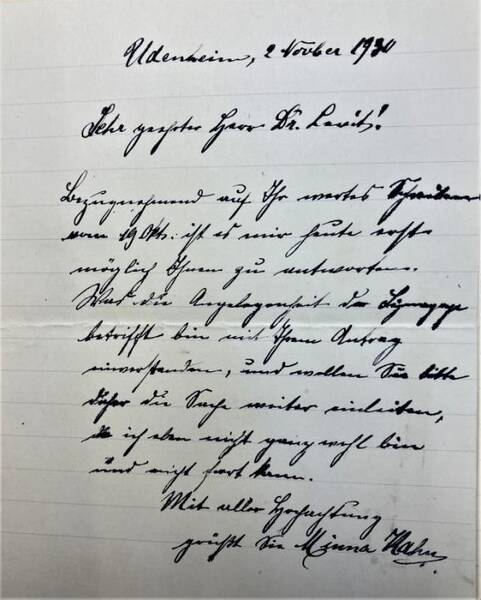 Udenheim, 2 Novber 1930
Sehr geehrter Herr Dr. Levit!
Bezugnehmend auf Ihr wertes Schreiben
vom 19 Okt. ist es mir heute erst
möglich Ihnen zu antworten.
Was die Angelegenheit der Synagoge
betrifft bin mit Ihrem Antrag
einverstanden, und wollen Sie bitte
daher die Sache weiter einleiten,
da ich eben nicht ganz wohl bin
und nicht fort kann.
Mit aller Hochachtung
grüßt Sie Minna Kahn.